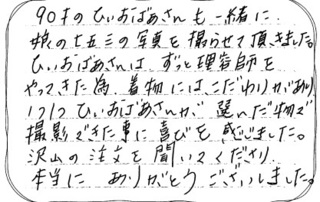 90才のひいおばあさんも一緒に
娘の七五三の写真を撮らせて頂きました。
ひいおばあさんは ずっと理容師を
やってきた為、着物にはこだわりがあり
1つ1つひいおばあさんが 選んだ物で
撮影できた事に喜びを感じました。
沢山の注文を聞いてくださり
本当に ありがとう ございました。